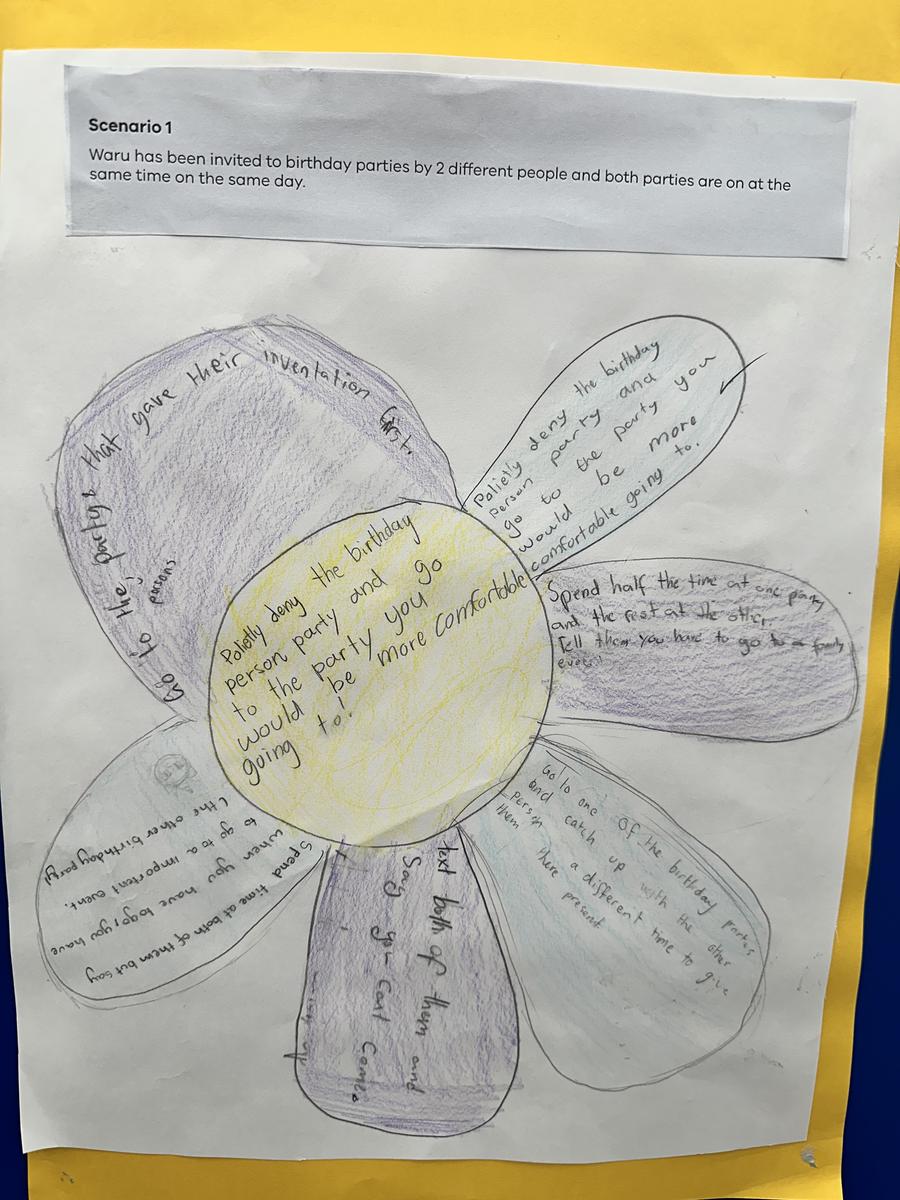 Scenario 1
Waru has been invited to birthday parties by 2 different people and both parties are on at the
same time on the same day.
Go to the partys that gave their inventation first.
persons
Polietly deny the birthday
person party and
go to the party you
would be more
comfortable going to.
Polietly deny the birthday
person party and go
to the party you
would be more comfortable
going to!
Spend half the time at one party
and the rest at the other.
Tell them you have to go to a family
event
Go to one of the birthday parties
and catch up with the other
person a different time to give
them there present
text both of them and
Say you cant come.
Spend time at both of them but say
when you have to go, you have
to go to a important event.
(the other birthday party)